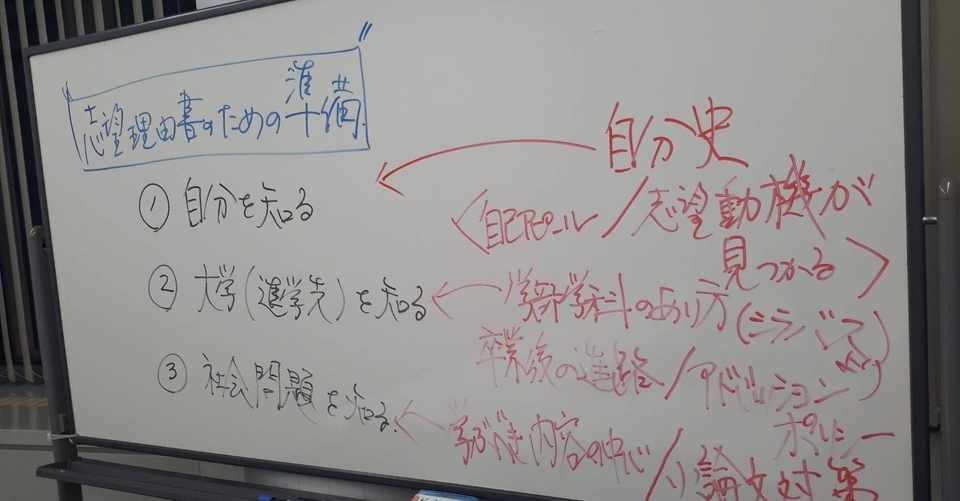 志望理由書のための準備
① 自分を知る
② 大学(進学先)を知る
③ 社会問題を知る。
自分史
<自己アピール/志望動機が
見つかる>
学部学科のあり方(シラバス
卒業後の進路/アドミッション
ポリシー
学ぶべき内容の中心/小論文対策